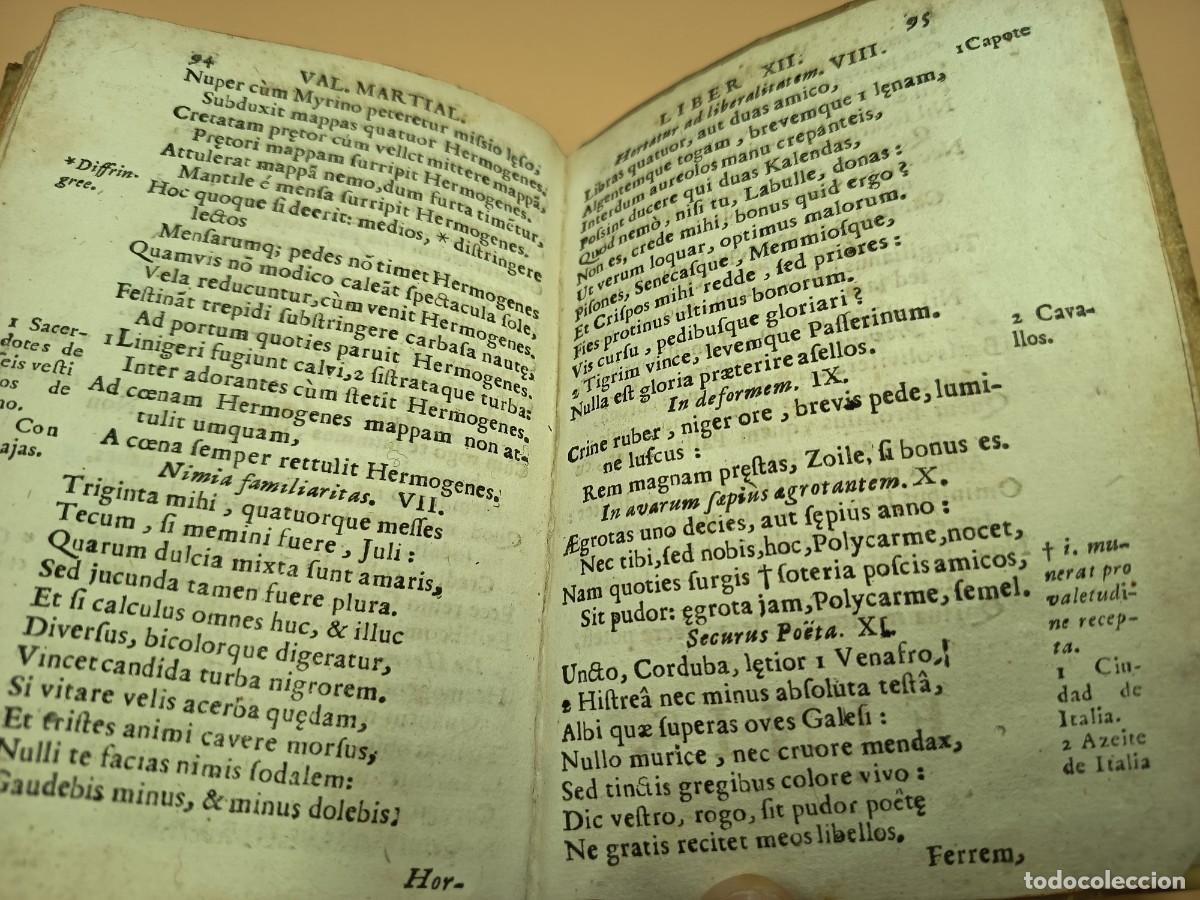 94
VAL. MARTIAL.
Nuper cùm Myrino peteretur miſsio lęſo,
Subduxit mappas quatuor Hermogenes.
Cretatam prętor cùm vellet mittere mappã,
Prętori mappam ſurripit Hermogenes.
Attulerat mappã nemo, dum furta timẽtur,
Mantile é menſa ſurripit Hermogenes.
Hoc quoque ſi deerit: medios, * diſtringere
lectos
Menſarumq; pedes nõ timet Hermogenes
Quamvis nõ modico caleãt ſpectacula ſole,
Vela reducuntur, cùm venit Hermogenes.
Feſtinãt trepidi ſubſtringere carbaſa nautę,
Ad portum quoties paruit Hermogenes.
1 Linigeri fugiunt calvi, 2 ſiſtrataque turba:
Inter adorantes cùm ſtetit Hermogenes.
Ad cœnam Hermogenes mappam non at-
tulit umquam,
A cœna ſemper rettulit Hermogenes.
Nimia familiaritas. VII.
Triginta mihi, quatuorque meſſes
Tecum, ſi memini fuere, Juli:
Quarum dulcia mixta ſunt amaris,
Sed jucunda tamen fuere plura.
Et ſi calculus omnes huc, & illuc
Diverſus, bicolorque digeratur,
Vincet candida turba nigrorem.
Si vitare velis acerba quędam,
Et triſtes animi cavere morſus,
Nulli te facias nimis ſodalem:
Gaudebis minus, & minus dolebis.
Hor-
* Diffrin-
gree.
1 Sacer-
dotes de
eis veſti
os de
no.
Con
ajas.
LIBER XII.
95
Hortatur ad liberalitatem. VIII.
Libras quatuor, aut duas amico,
Algentemque togam, brevemque 1 lęnam,
Interdum aureolos manu crepanteis,
Poſsint ducere qui duas Kalendas,
Quod nemò, niſi tu, Labulle, donas:
Non es, crede mihi, bonus quid ergo?
Ut verum loquar, optimus malorum.
Piſones, Senecaſque, Memmioſque,
Et Criſpos mihi redde, ſed priores:
Fies protinus ultimus bonorum.
Vis curſu, pedibuſque gloriari?
2 Tigrim vince, levemque Paſſerinum.
Nulla eſt gloria præterire aſellos.
In deformem. IX.
Crine ruber, niger ore, brevis pede, lumi-
ne luſcus:
Rem magnam pręſtas, Zoile, ſi bonus es.
In avarum ſæpiùs ægrotantem. X.
Ægrotas uno decies, aut ſępius anno:
Nec tibi, ſed nobis, hoc, Polycarme, nocet,
Nam quoties ſurgis † ſoteria poſcis amicos,
Sit pudor: ęgrota jam, Polycarme, ſemel.
Securus Poëta. XI.
Uncto, Corduba, lętior 1 Venafro,
2 Hiſtreâ nec minus abſoluta teſtâ,
Albi quæ ſuperas oves Galeſi:
Nullo murice, nec cruore mendax,
Sed tinctis gregibus colore vivo:
Dic veſtro, rogo, ſit pudor poêtę
Ne gratis recitet meos libellos.
Ferrem,
1 Capote
2 Cava-
llos.
† i. mu-
nerat pro
valetudi-
ne recep-
ta.
1 Ciu-
dad de
Italia.
2 Azeite
de Italia
todocoleccion